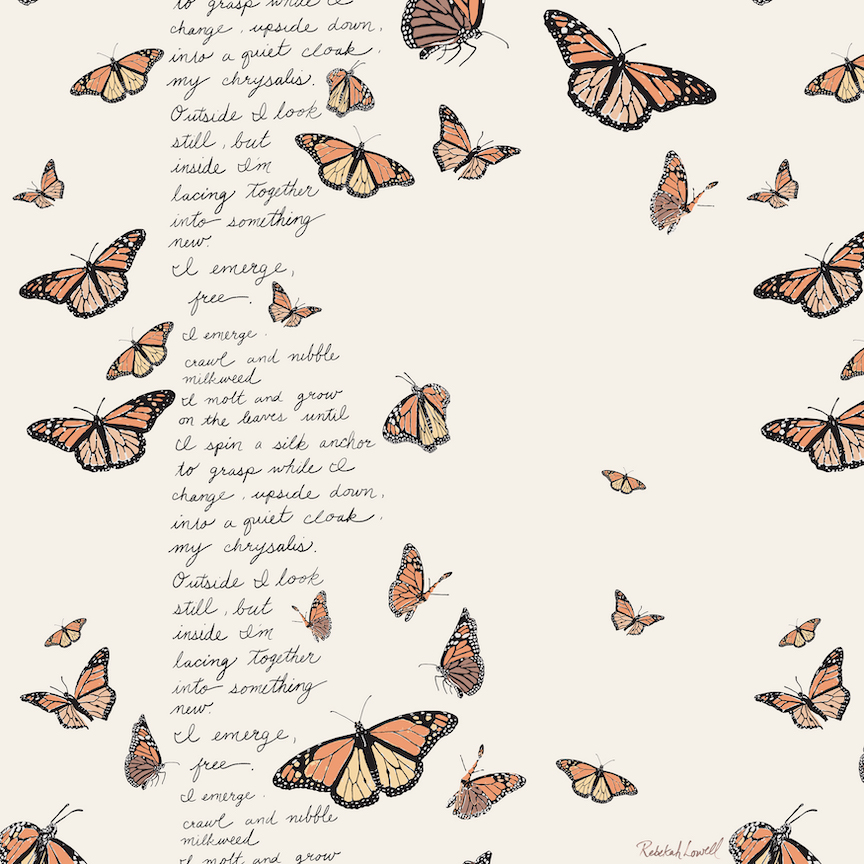 to grasp while I
change, upside down,
into a quiet cloak,
my chrysalis.
Outside I look
still, but
inside I'm
lacing together
into something
new.
I emerge,
free.
I emerge.
crawl and nibble
milkweed
I molt and grow
on the leaves until
I spin a silk anchor
to grasp while I
change, upside down,
into a quiet cloak,
my chrysalis.
Outside I look
still, but
inside I'm
lacing together
into something
new.
I emerge,
free.
I emerge.
crawl and nibble
milkweed
I molt and grow
Rebekah Lowell